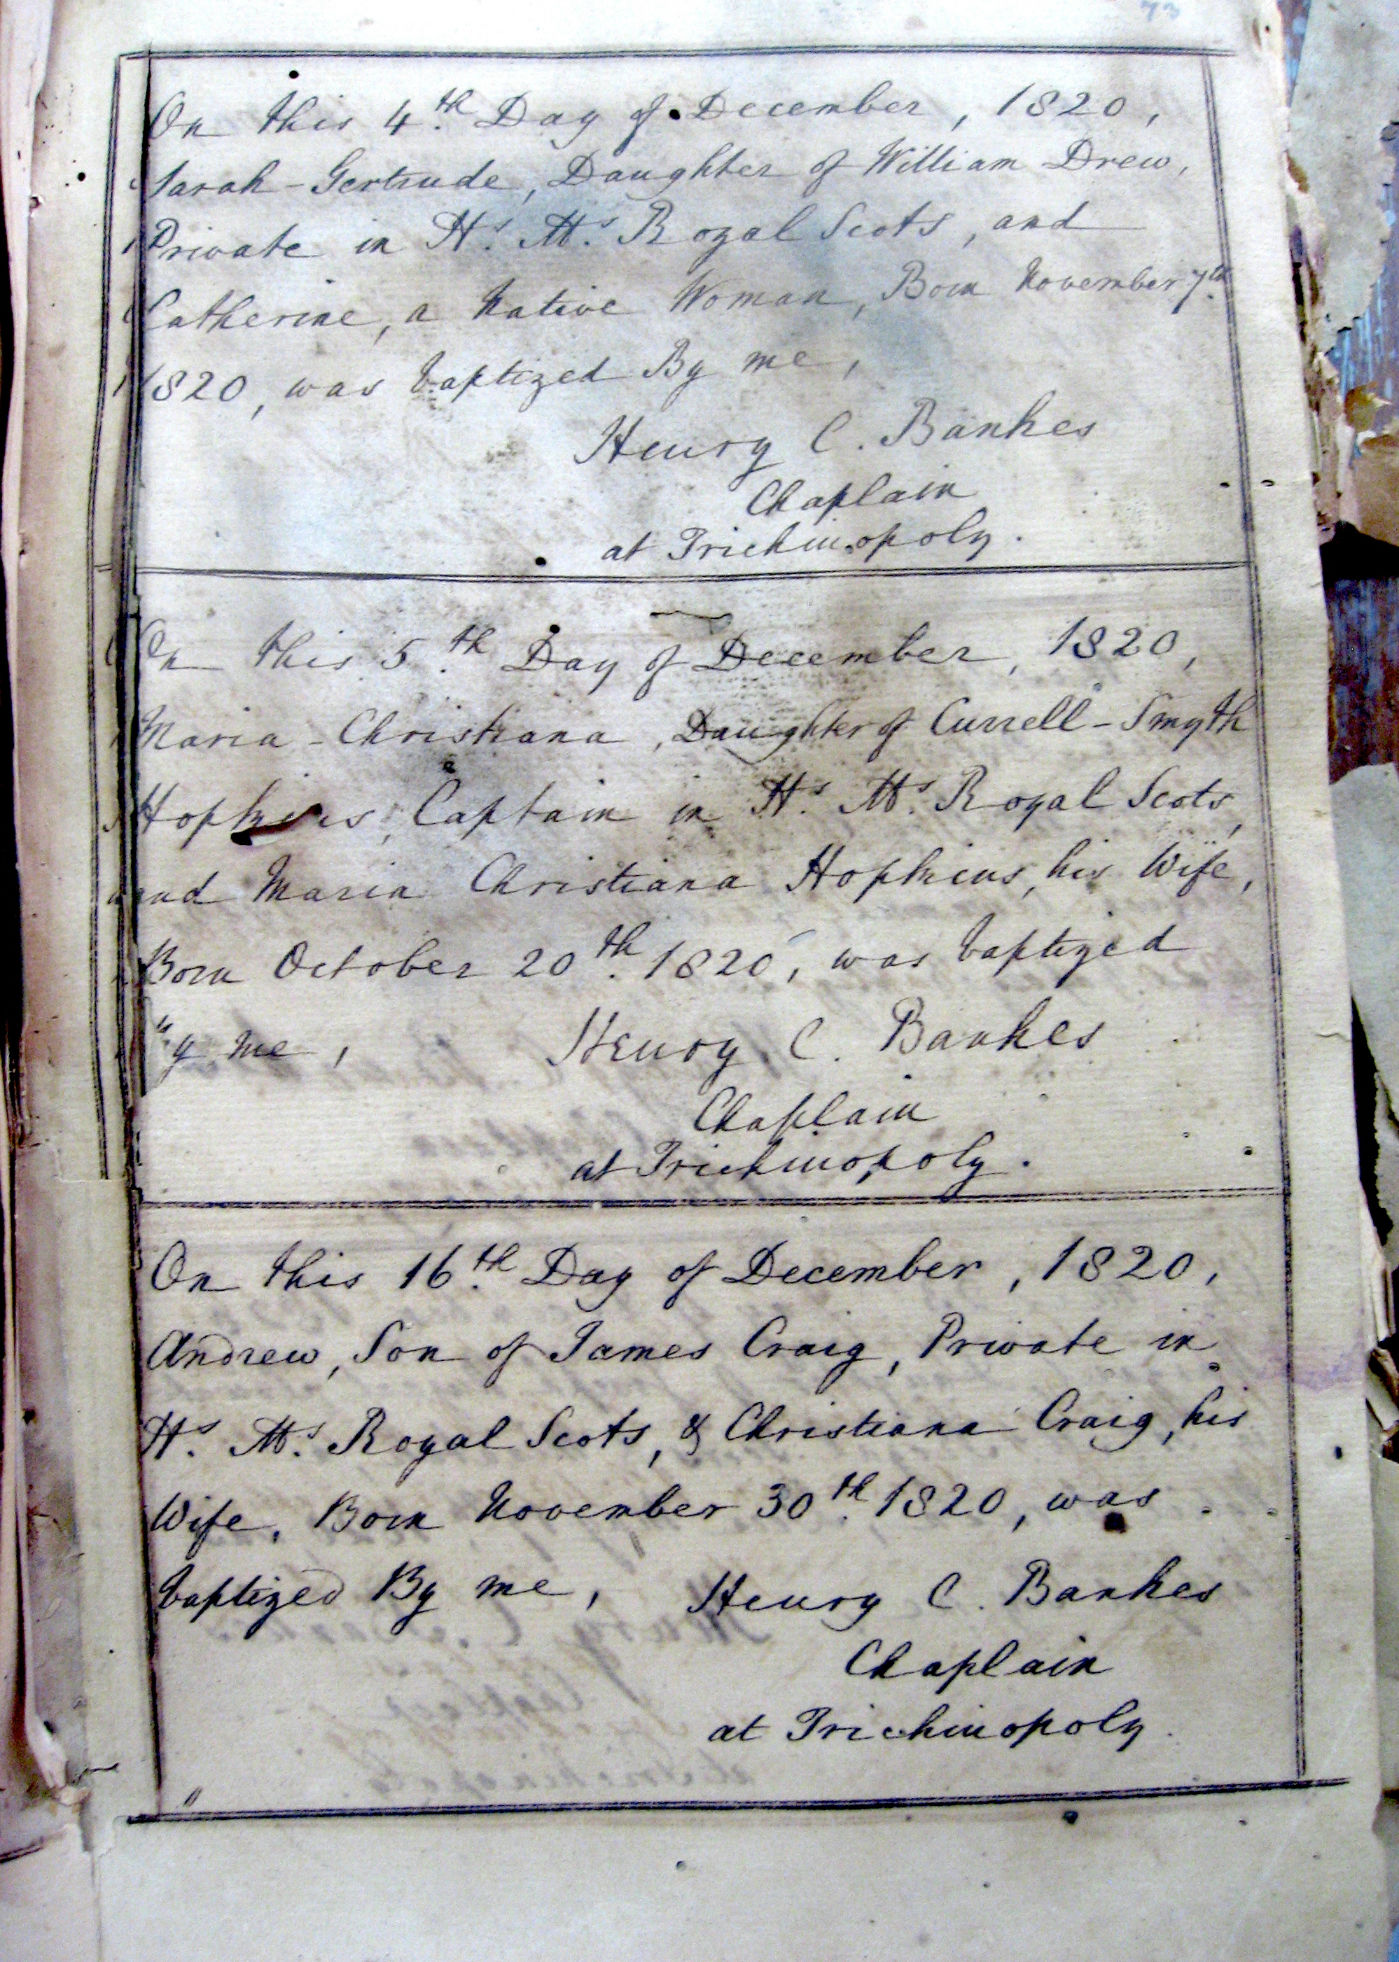 73
On this 4th Day of December, 1820,
Sarah-Gertrude, Daughter of William Drew,
Private in H.s M.s Royal Scots, and
Catherine, a Native Woman, Born November 7th
1820, was baptized By me,
Henry C. Bankes
Chaplain
at Trichinopoly.
On this 5th Day of December, 1820,
Maria-Christiana, Daughter of Currell-Smyth
Hopkins, Captain in H.s M.s Royal Scots,
and Maria Christiana Hopkins, his Wife,
Born October 20th 1820, was baptized
By me, Henry C. Bankes
Chaplain
at Trichinopoly.
On this 16th Day of December, 1820,
Andrew, Son of James Craig, Private in
H.s M.s Royal Scots, & Christiana Craig, his
Wife, Born November 30th 1820, was
baptized By me, Henry C. Bankes
Chaplain
at Trichinopoly.